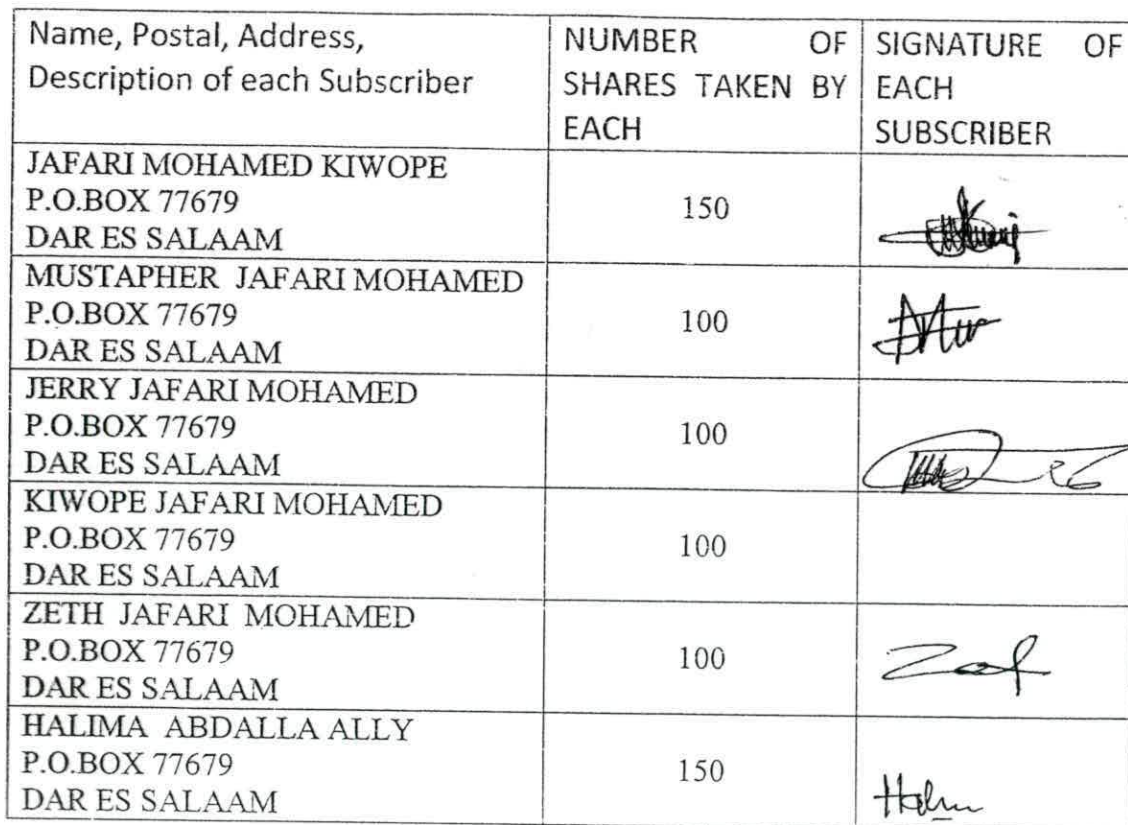 Name, Postal, Address,
Description of each Subscriber
NUMBER OF
SHARES TAKEN BY
EACH
SIGNATURE OF
EACH
SUBSCRIBER
JAFARI MOHAMED KIWOPE
P.O.BOX 77679
DAR ES SALAAM
150
MUSTAPHER JAFARI MOHAMED
P.O.BOX 77679
DAR ES SALAAM
100
JERRY JAFARI MOHAMED
P.O.BOX 77679
DAR ES SALAAM
100
KIWOPE JAFARI MOHAMED
P.O.BOX 77679
DAR ES SALAAM
100
ZETH JAFARI MOHAMED
P.O.BOX 77679
DAR ES SALAAM
100
HALIMA ABDALLA ALLY
P.O.BOX 77679
DAR ES SALAAM
150